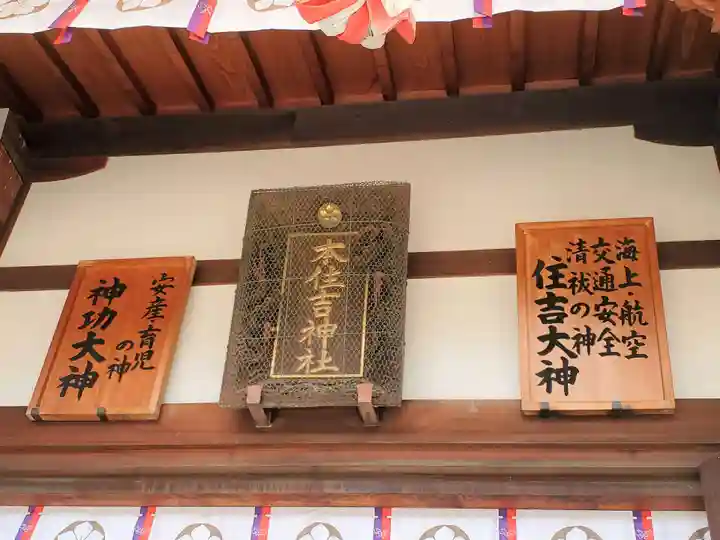 海上航空
交通安全
清祓の神
住吉大神
本住吉神社
安産・育児
の神
神功大神